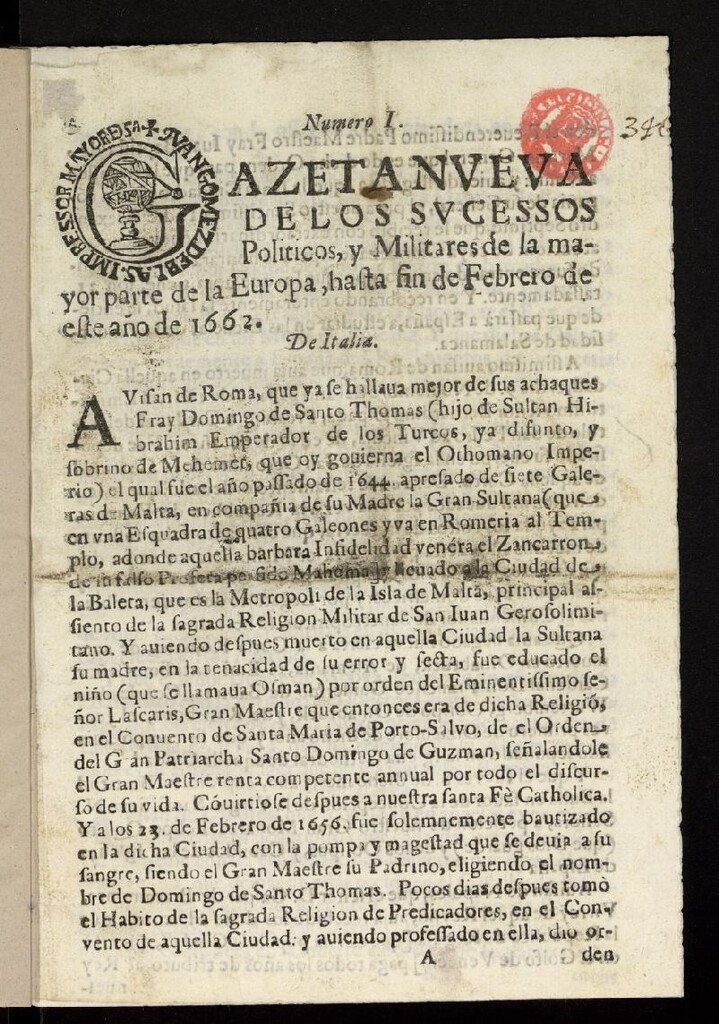 Numero I.
348
IVAN GOMEZ DE BLAS. IMPRESSOR MAYOR DE SA.
GAZETA NVEVA
DE LOS SVCESSOS
Politicos, y Militares de la ma-
yor parte de la Europa, hasta fin de Febrero de
este año de 1662.
De Italia.
AVisan de Roma, que ya se hallaua mejor de sus achaques
Fray Domingo de Santo Thomas (hijo de Sultan Hi-
brahim Emperador de los Turcos, ya difunto, y
sobrino de Mehemet, que oy gouierna el Othomano Impe-
rio) el qual fue el año passado de 1644. apresado de siete Gale-
ras de Malta, en compañia de su Madre la Gran Sultana (que
en vna Esquadra de quatro Galeones yva en Romeria al Tem-
plo, adonde aquella barbara Infidelidad venera el Zancarron
de su falso Profeta perfido Mahoma) y lleuado a la Ciudad de
la Baleta, que es la Metropoli de la Isla de Malta, principal as-
siento de la sagrada Religion Militar de San Iuan Gerosolimi-
tano. Y auiendo despues muerto en aquella Ciudad la Sultana
su madre, en la tenacidad de su error y secta, fue educado el
niño (que se llamaua Osman) por orden del Eminentissimo se-
ñor Lascaris, Gran Maestre que entonces era de dicha Religió,
en el Conuento de Santa Maria de Porto-Salvo, de el Orden
del Gran Patriarcha Santo Domingo de Guzman, señalandole
el Gran Maestre renta competente annual por todo el discur-
so de su vida. Cóuirtiose despues a nuestra santa Fè Catholica.
Y a los 23. de Febrero de 1656. fue solemnemente bautizado
en la dicha Ciudad, con la pompa y magestad que se devia a su
sangre, siendo el Gran Maestre su Padrino, eligiendo el nom-
bre de Domingo de Santo Thomas. Pocos dias despues tomò
el Habito de la sagrada Religion de Predicadores, en el Con-
vento de aquella Ciudad: y auiendo professado en ella, dio or-
A den